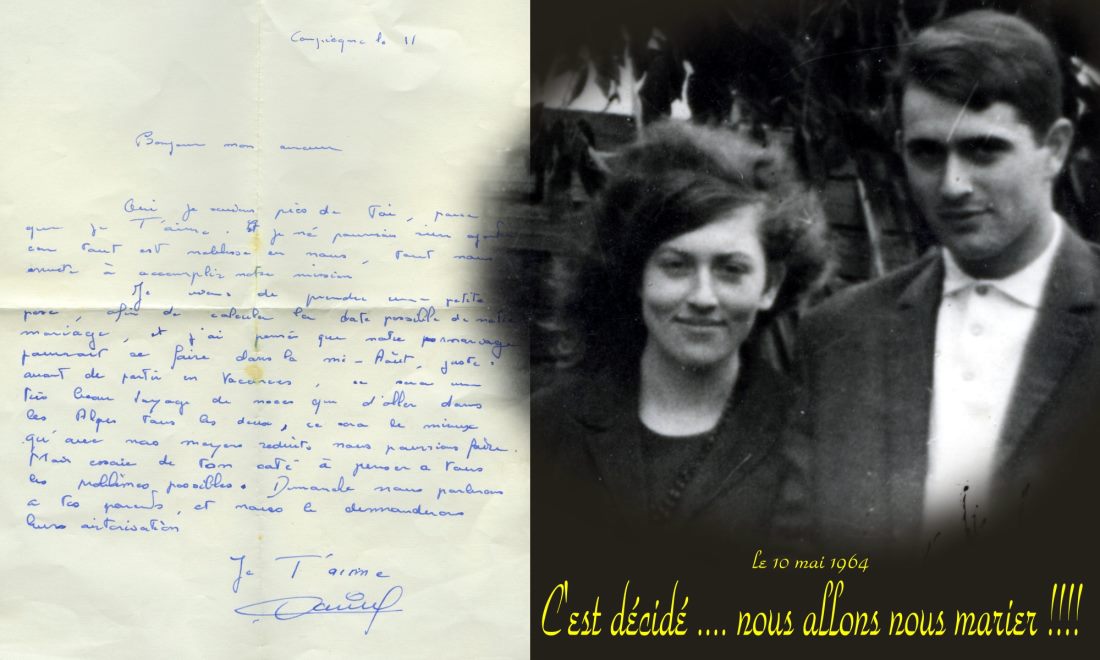 Compiègne le 11
Bonjour mon amour
Oui je suis près de Toi, parce
que je T'aime. Et je ne pourrais rien ajouter
car tout est noblesse en nous, tout nous
à accomplir notre mission
Je viens de prendre une petite
pose, afin de calculer la date possible de notre
mariage, et j'ai pensé que notre
pourrait se faire dans la mi-Août, juste
avant de partir en Vacances, ce sera un
très beau voyage de noces que d'aller dans
les Alpes tous les deux, ce sera le mieux
qu'avec nos moyens reduits nous pourrions faire.
Mais essaie de ton coté à penser a tous
les problèmes possibles. Dimanche nous parlerons
a tes parents, et nous le demanderons
leurs autorisation
Je T'aime
Daniel
Le 10 mai 1964
C'est décidé .... nous allons nous marier !!!!